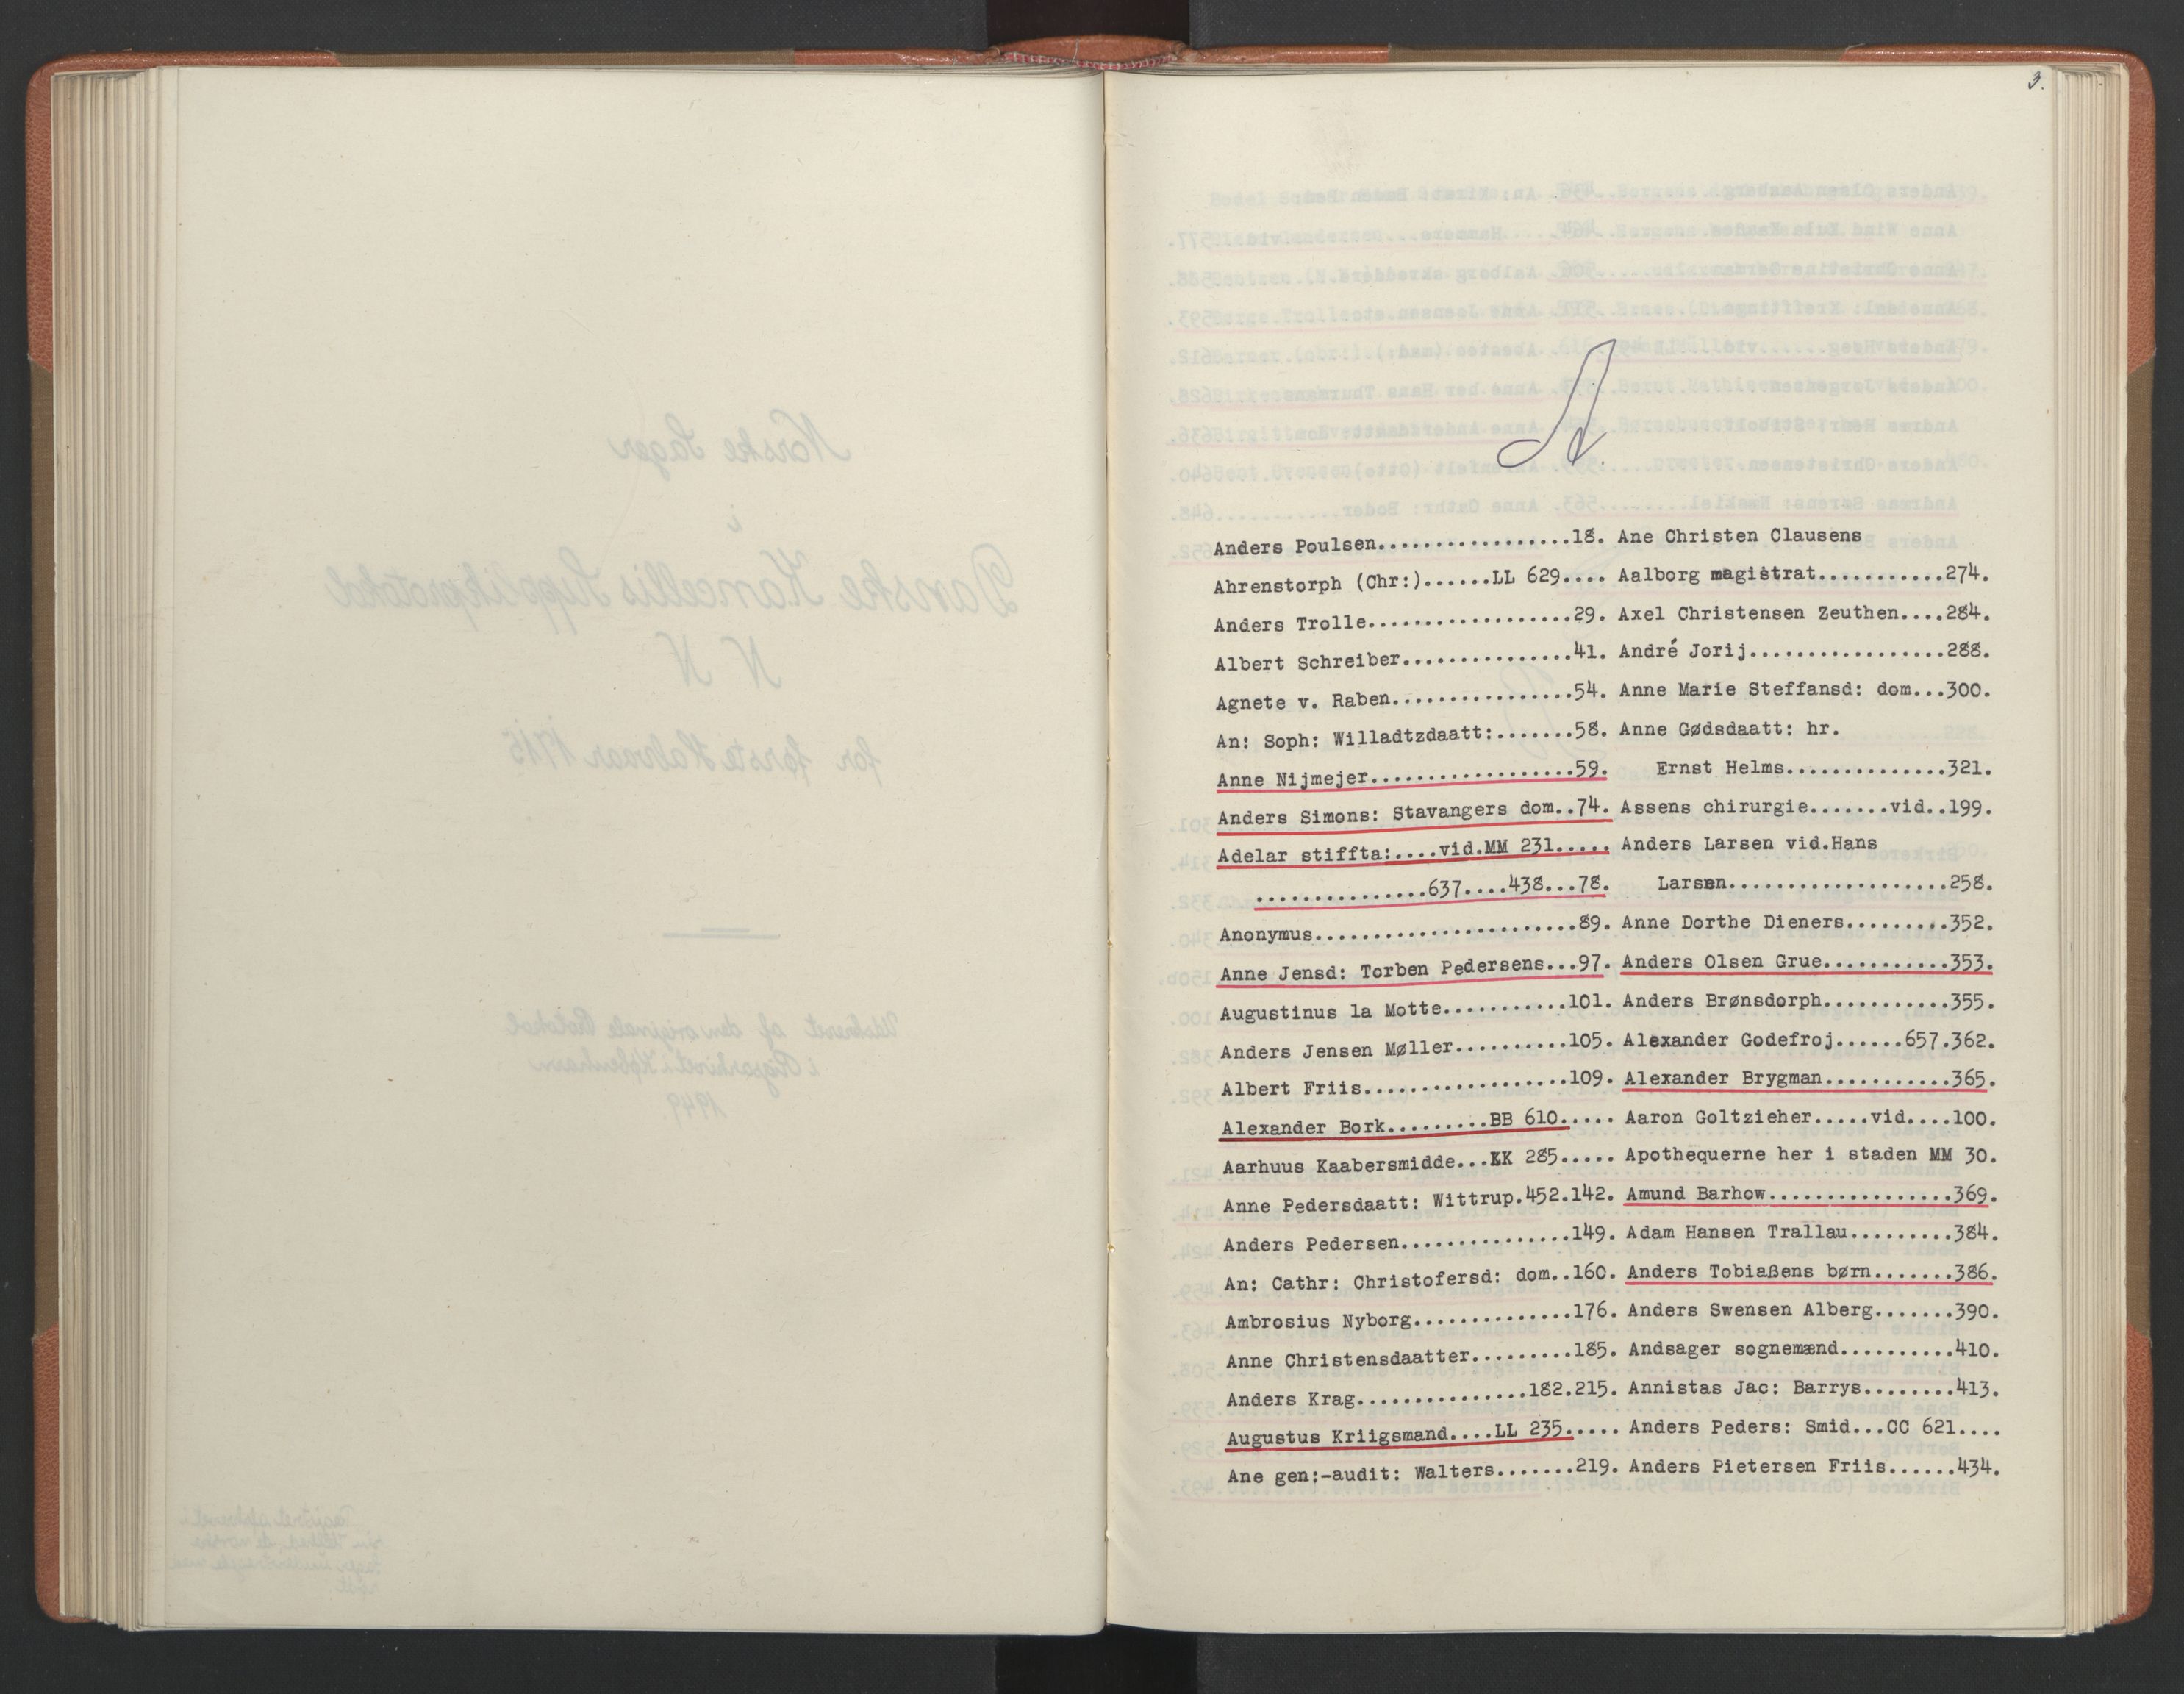 3.
A.
Anders Poulsen.................18.
Ahrenstorph (Chr:)......LL 629....
Anders Trolle..................29.
Albert Schreiber...............41.
Agnete v. Raben................54.
An: Soph: Willadtzdaatt:.......58.
Anne Nijmejer..................59.
Anders Simons: Stavangers dom..74.
Adelar stiffta:....vid.MM 231.....
...............637....438...78.
Anonymus.......................89.
Anne Jensd: Torben Pedersens...97.
Augustinus la Motte...........101.
Anders Jensen Møller..........105.
Albert Friis..................109.
Alexander Bork.........BB 610.....
Aarhuus Kaabersmidde...KK 285.....
Anne Pedersdaatt: Wittrup.452.142.
Anders Pedersen...............149.
An: Cathr: Christofersd: dom..160.
Ambrosius Nyborg..............176.
Anne Christensdaatter.........185.
Anders Krag...............182.215.
Augustus Kriigsmand....LL 235.....
Ane gen:-audit: Walters.......219.
Ane Christen Clausens
Aalborg magistrat...........274.
Axel Christensen Zeuthen....284.
André Jorij.................288.
Anne Marie Steffansd: dom...300.
Anne Gødsdaatt: hr.
Ernst Helms..............321.
Assens chirurgie.......vid..199.
Anders Larsen vid.Hans
Larsen...................258.
Anne Dorthe Dieners.........352.
Anders Olsen Grue...........353.
Anders Brønsdorph...........355.
Alexander Godefroj......657.362.
Alexander Brygman...........365.
Aaron Goltzieher.....vid....100.
Apothequerne her i staden MM 30.
Amund Barhow................369.
Adam Hansen Trallau.........384.
Anders Tobiaßens børn.......386.
Anders Swensen Alberg.......390.
Andsager sognemænd..........410.
Annistas Jac: Barrys........413.
Anders Peders: Smid...CC 621....
Anders Pietersen Friis......434.